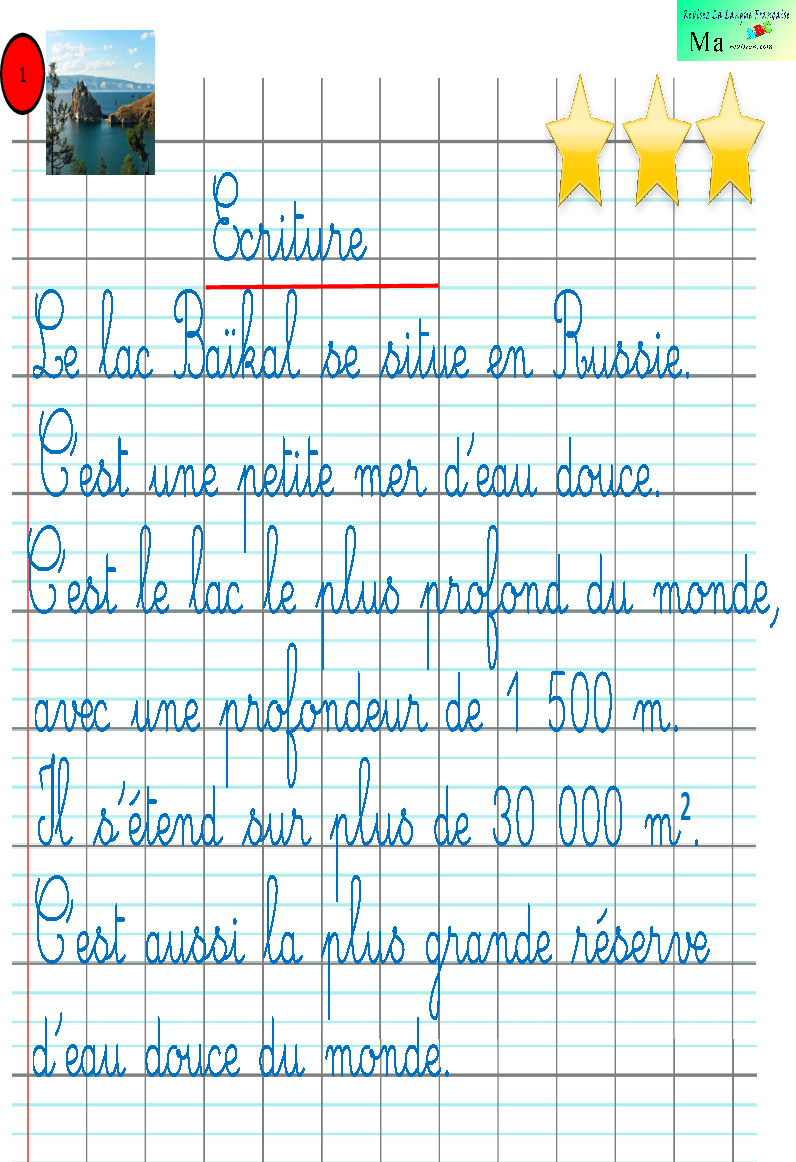 Revisez La Langue Française
1
Ma
Ecriture
Le lac Baïkal se situe en Russie.
C'est une petite mer d'eau douce.
C'est le lac le plus profond du monde,
avec une profondeur de 1 500 m.
Il s'étend sur plus de 30 000 m².
C'est aussi la plus grande réserve
d'eau douce du monde.